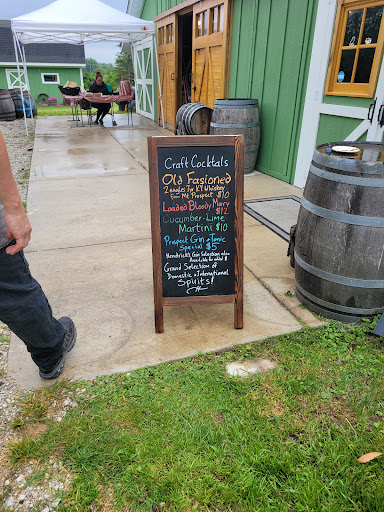 Craft Cocktals
Old Fasioned
2 eagles 7yr KY Whiskey
From Mt Prospect $10
Loaded Bloody Mary
$12
Cucumber-Lime
Martini $10
Prospect Gin & Tonic
Special $5
Hendrick's Gin Selection also
Available for added $
Grand Selection of
Domestic & International
Spirits!